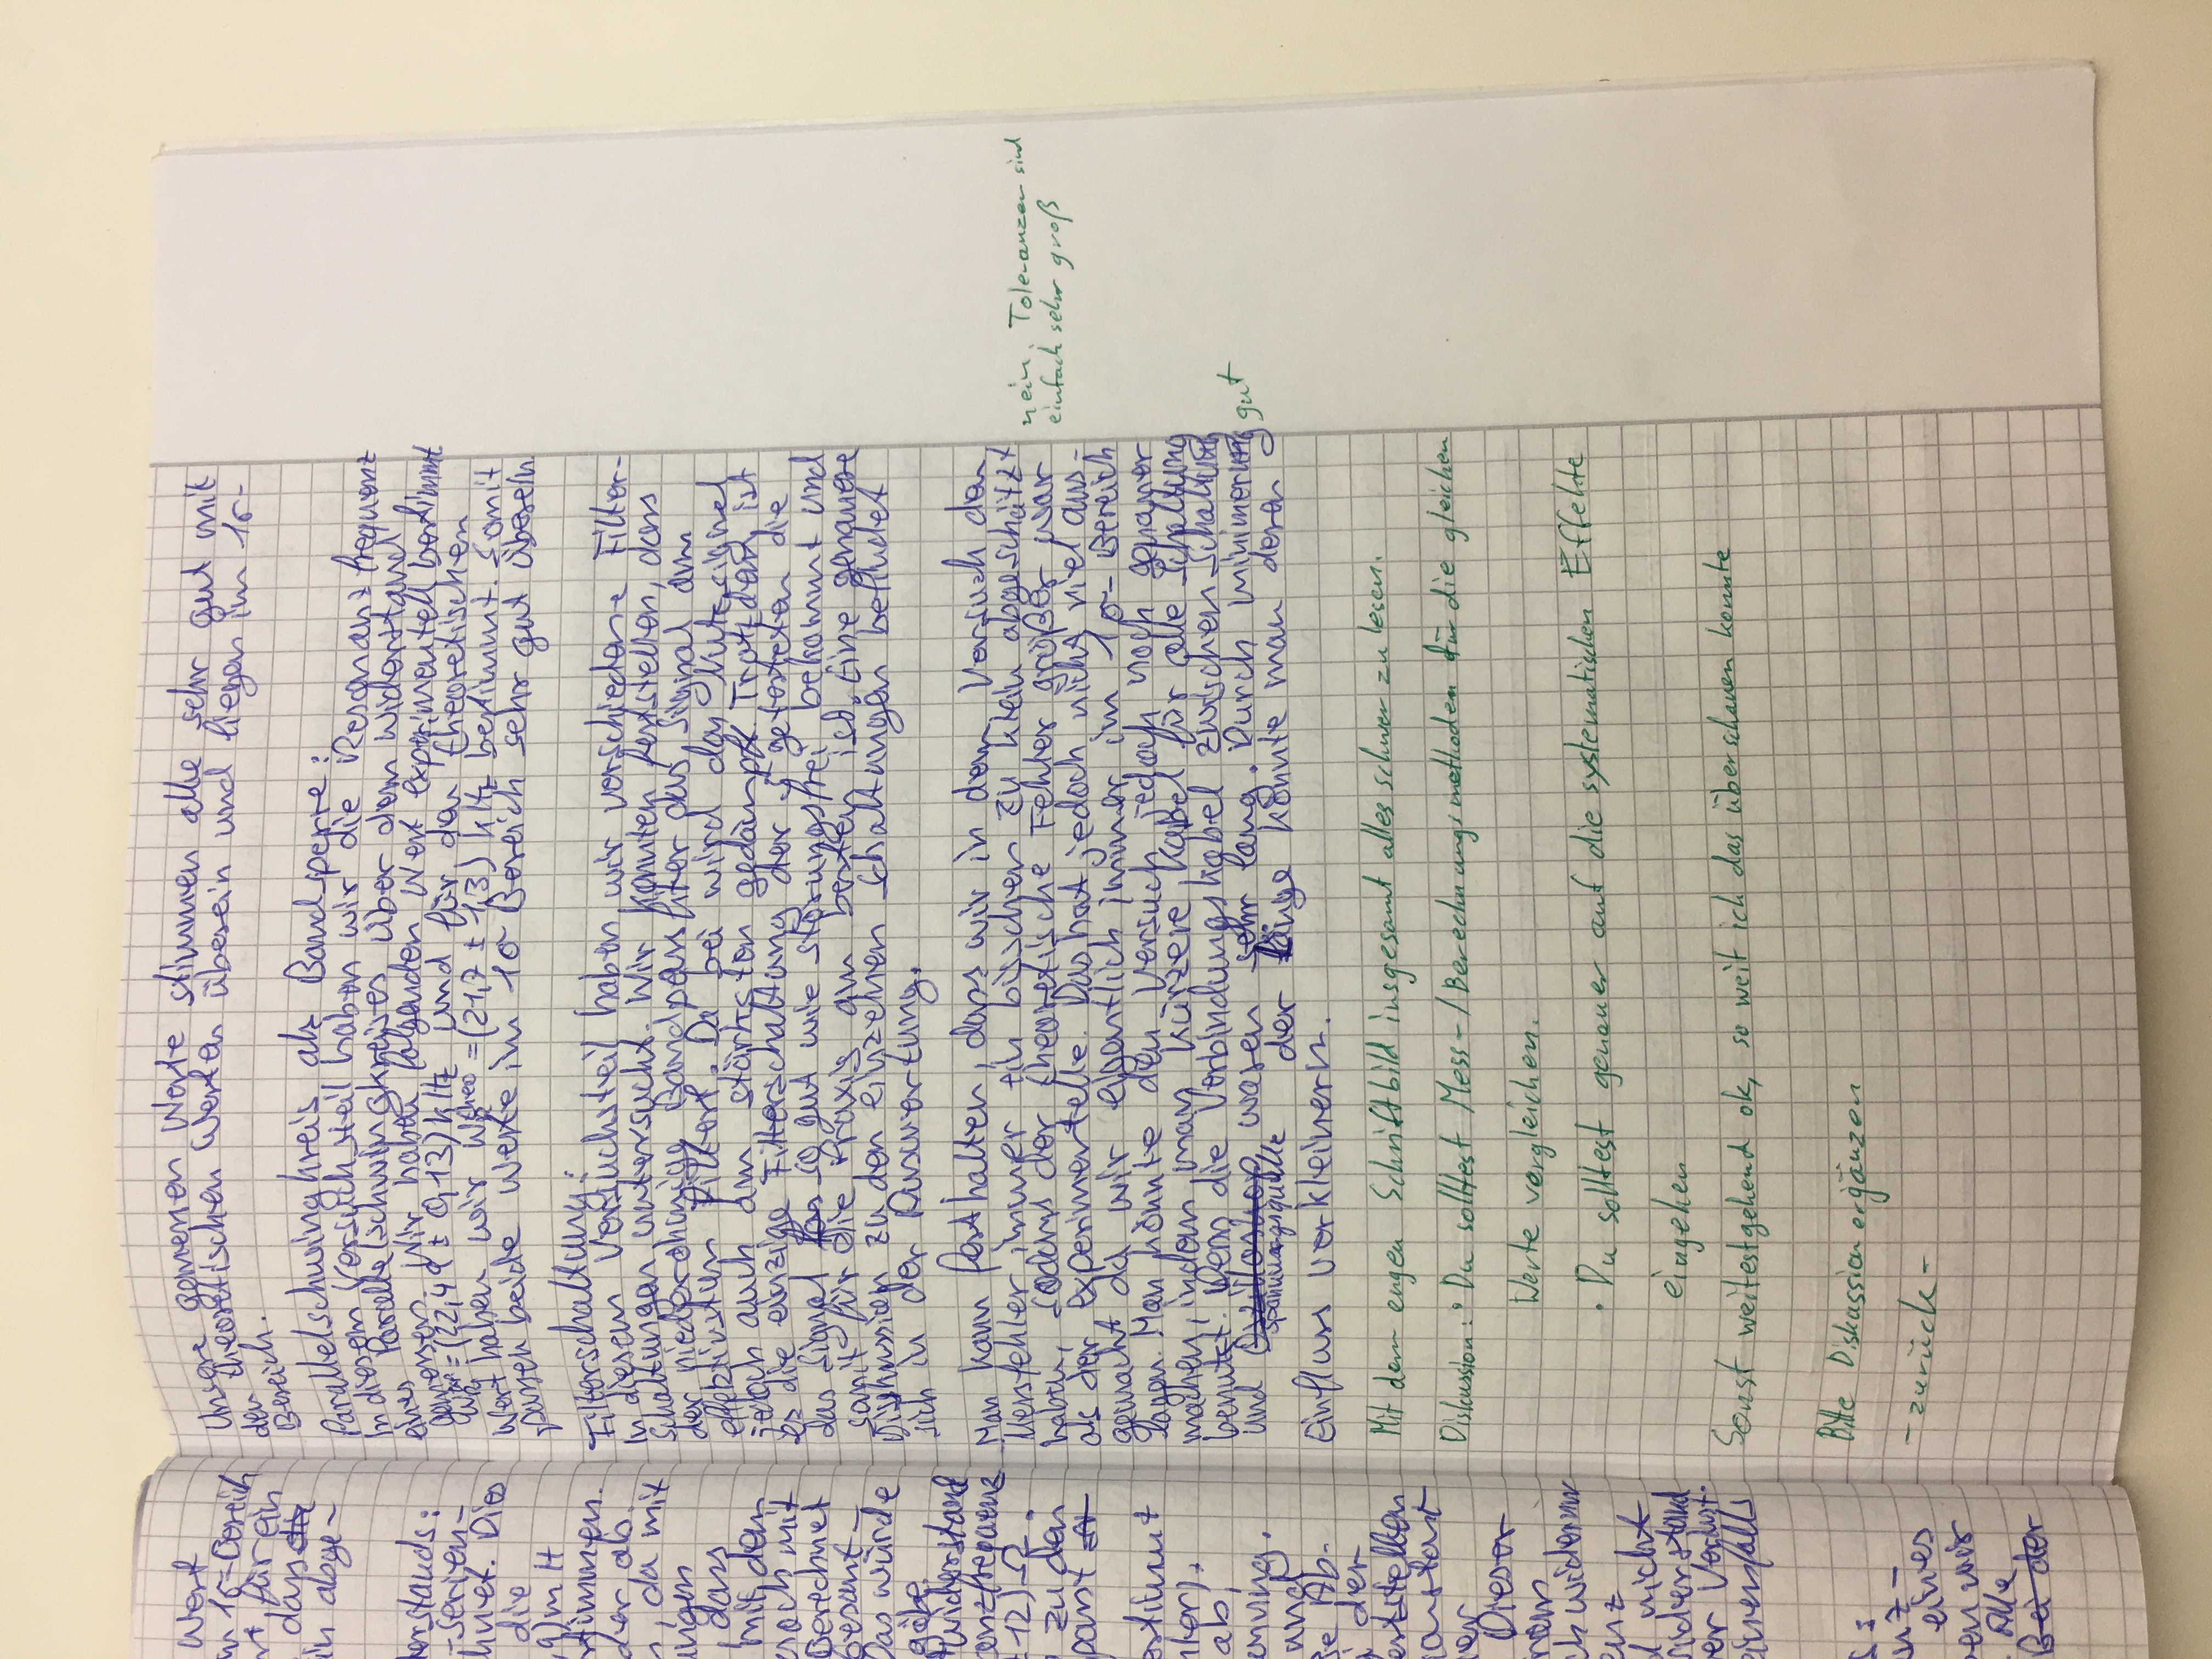 Wert
m 1σ-Bereich
für ein
dass die
in abge-
erstands:
-serien-
chnet. Dies
die
,9) mH
stimmen.
der ab.
, da mit
ungen
, dass
mit dem
noch mit
Berechnet
Gesamt-
Das würde
gäbe.
Widerstand
anzfrequenz
± 12) Ω.
zu den
passt
estimmt
ab,
nung.
und
ie Ab-
der
ertstellen
onstant
er
Dieser
ch wiederum
enz
nicht
widerstand
er Verlust-
einenfalls
s:
enz-
eines
en wir
. Alle
Bei der
Unsere gemessen Werte stimmen alle sehr gut mit
den theoretischen Werten überein und liegen im 1σ-
Bereich.
Parallelschwingkreis als Bandsperre:
In diesem Versuchsteil haben wir die Resonanzfrequenz
eines Parallelschwingkreises über dem Widerstand
gemessen. Wir haben folgenden Wert experimentell bestimmt
= (22,49 ± 0,13) kHz und für den theoretischen
Wert haben wir = (21,7 ± 1,3) kHz bestimmt. Somit
passen beide Werte im 1σ Bereich sehr gut überein
Filterschaltung:
In diesem Versuchsteil haben wir verschiedene Filter-
schaltungen untersucht. Wir konnten feststellen, dass
der niederohmige Bandpassfilter das Signal am
effektivsten filtert. Da bei wird das Nutzsignal
jedoch auch am stärksten gedämpft. Trotzdem ist
es die einzige Filterschaltung der 5 getesteten die
das Signal so gut wie störungsfrei bekommt und
somit für die Praxis am besten ist. Eine genauere
Diskussion zu den einzelnen Schaltungen befindet
sich in der Auswertung.
Man kann festhalten, dass wir in dem Versuch den
Messfehler immer ein bisschen zu klein abgeschätzt
haben, sodass der theoretische Fehler größer war
als der experimentelle. Das hat jedoch nicht viel aus-
gemacht da wir eigentlich immer im 1σ-Bereich
lagen. Man könnte den Versuch jedoch noch genauer
machen, indem man kürzere Kabel für alle Schaltung
benutzt. Denn die Verbindungskabel zwischen Schaltung
und Oszilloskop waren sehr lang. Durch minimierung
Spannungsquelle der Länge könnte man deren
Einfluss verkleinern.
nein, Toleranzen sind
einfach sehr groß
gut
Mit dem engen Schriftbild insgesamt alles schwer zu lesen.
Diskussion: • Du solltest Mess-/Berechnungsmethoden für die gleichen
Werte vergleichen.
• Du solltest genauer auf die systematischen Effekte
eingehen
Sonst weitestgehend ok, so weit ich das überschauen konnte
Bitte Diskussion ergänzen
- zurück -